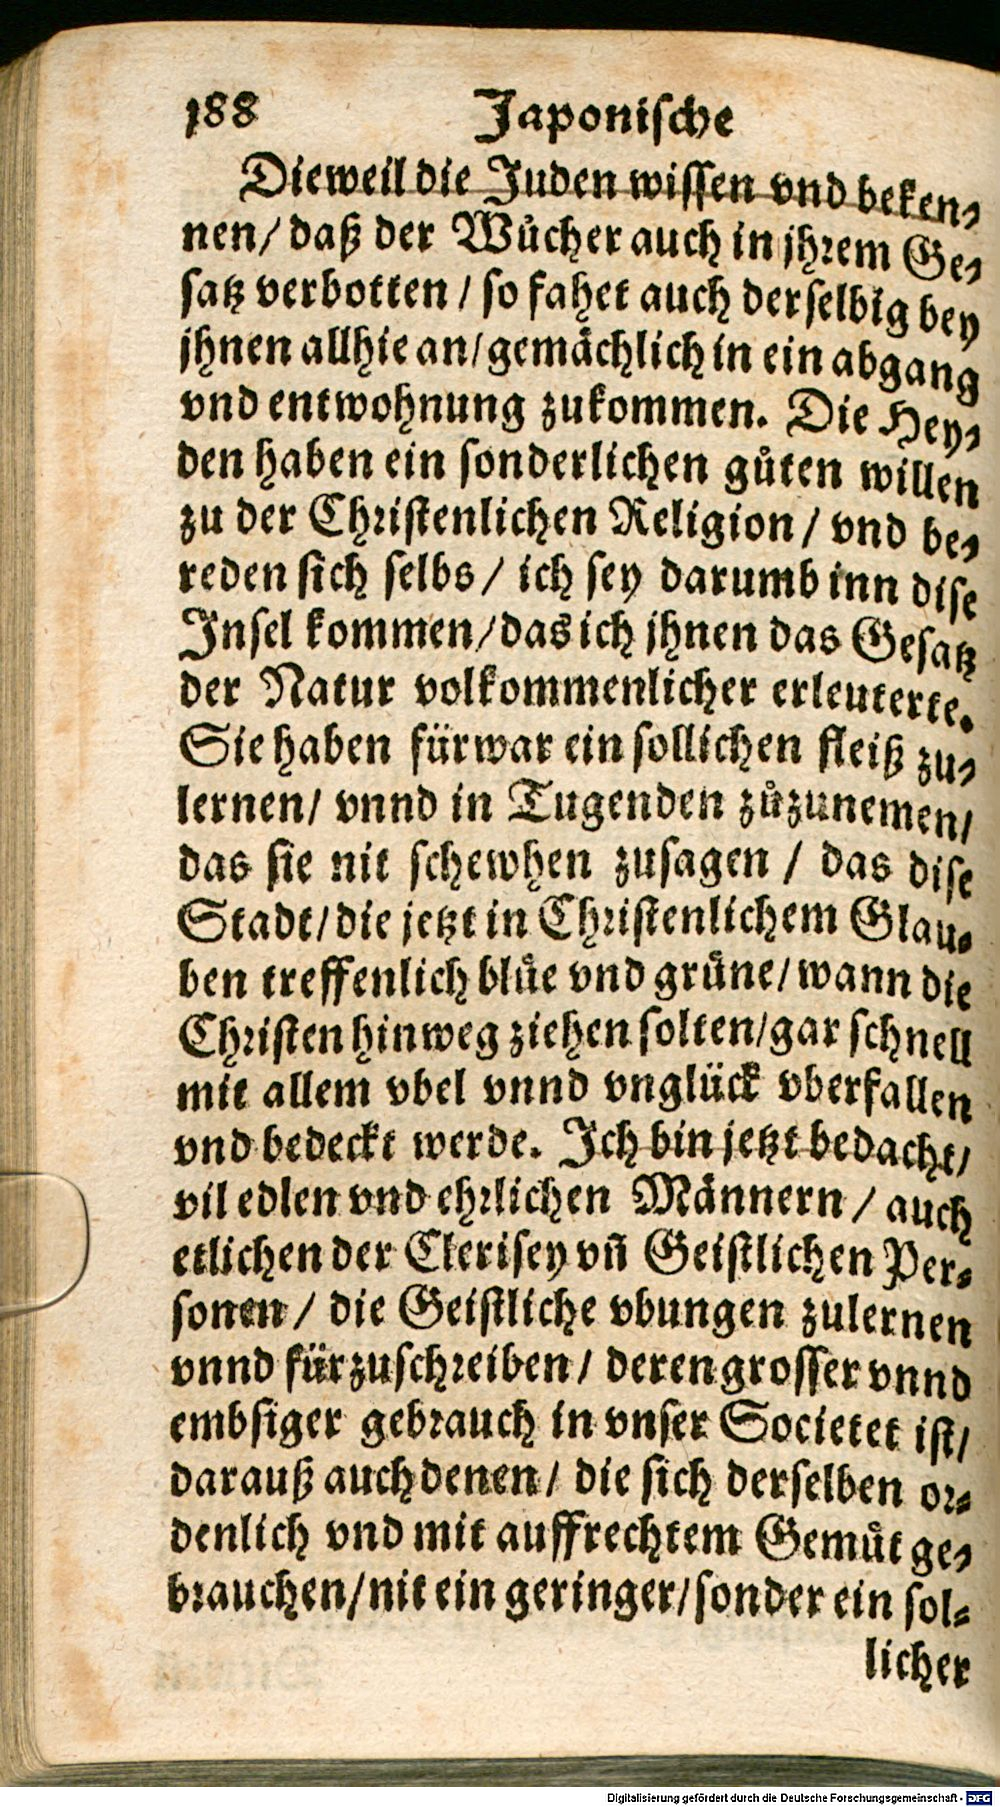 188 Japonische
Dieweil die Juden wissen vnd beken-
nen/ daß der Wůcher auch in jhrem Ge-
satz verbotten / so fahet auch derselbig bey
jhnen allhie an/ gemächlich in ein abgang
vnd entwohnung zukommen. Die Hey-
den haben ein sonderlichen gůten willen
zu der Christenlichen Religion / vnd be-
reden sich selbs / ich sey darumb inn dise
Insel kommen/ das ich jhnen das Gesatz
der Natur volkommenlicher erleuterte.
Sie haben fürwar ein sollichen fleiß zu-
lernen/ vnnd in Tugenden zůzunemen/
das sie nit schewhen zusagen / das dise
Stadt/ die jetzt in Christenlichem Glau-
ben treffenlich blůe vnd grůne/ wann die
Christen hinweg ziehen solten/ gar schnell
mit allem vbel vnnd vnglück vberfallen
vnd bedeckt werde. Ich bin jetzt bedacht/
vil edlen vnd ehrlichen Männern / auch
etlichen der Clerisey vñ Geistlichen Per-
sonen / die Geistliche vbungen zulernen
vnnd fürzuschreiben / deren grosser vnnd
embsiger gebrauch in vnser Societet ist/
darauß auch denen / die sich derselben or-
denlich vnd mit auffrechtem Gemůt ge-
brauchen/ nit ein geringer/ sonder ein sol-
licher
Digitalisierung gefördert durch die Deutsche Forschungsgemeinschaft - DFG